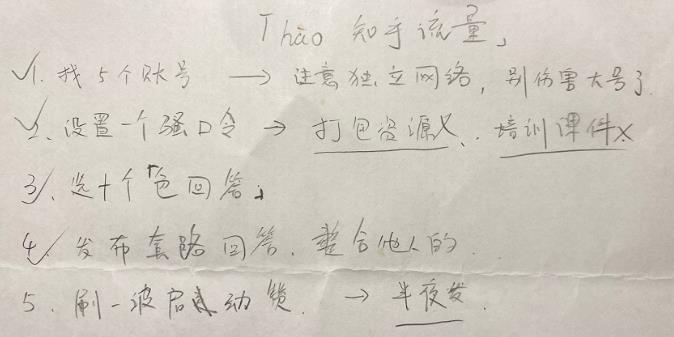 Thao 知乎流量」
✓1. 找5个账号 → 注意独立网络，别伤害大号了.
✓2、设置一个强口令 → 打包资源X、培训课件X
3✓、选十个「色回答」
4✓、发布套路回答、整合他人的.
5、刷一波启动 → 半夜发.